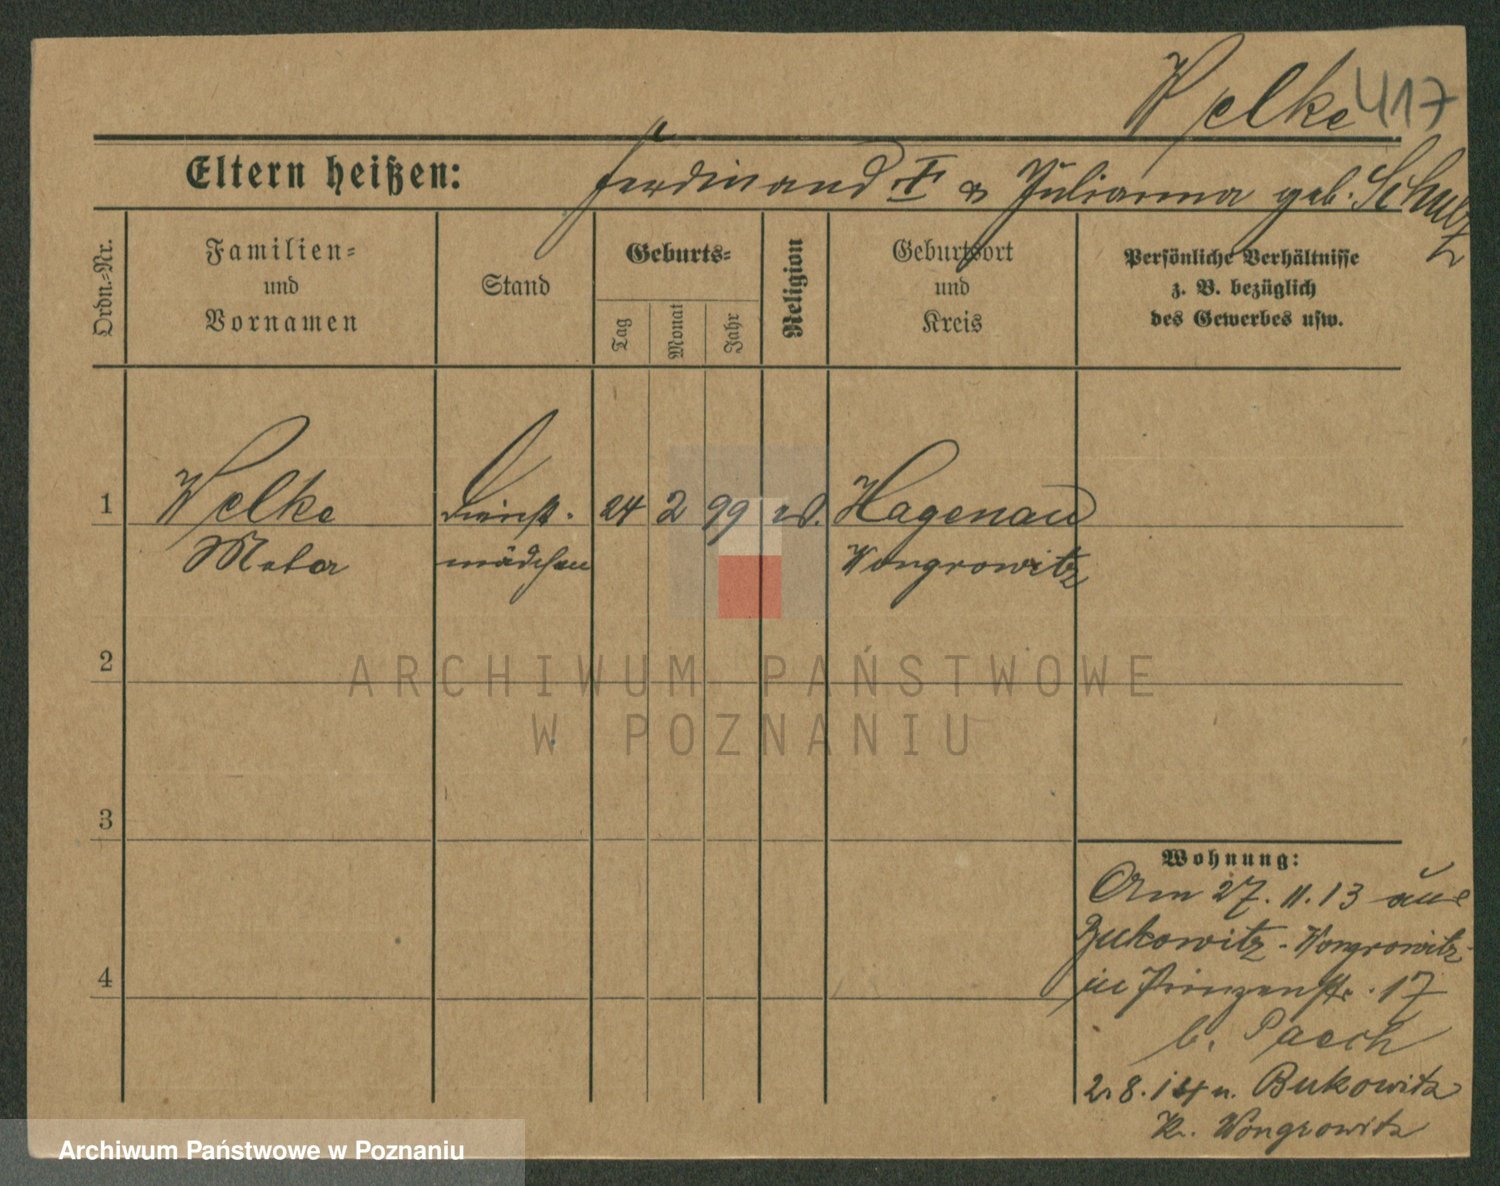 Welke 417
Eltern heißen: Ferdinand & Julianna geb. Schulz
Ordn.-Nr.
Familien-
und
Vornamen
Stand
Geburts-
Tag
Monat
Jahr
Religion
Geburtsort
und
Kreis
Persönliche Verhältnisse
z. B. bezüglich
des Gewerbes usw.
1 Welke Dienst- 24 2 99 Hagenau
mädchen Wongrowitz
2
3
4
Wohnung:
Am 27.11.13 aus
Bukowitz-Wongrowitz
in Prinzenstr. 17
b. Paech
2.8.14 n. Bukowitz
Kr. Wongrowitz
ARCHIWUM PAŃSTWOWE
W POZNANIU
Archiwum Państwowe w Poznaniu